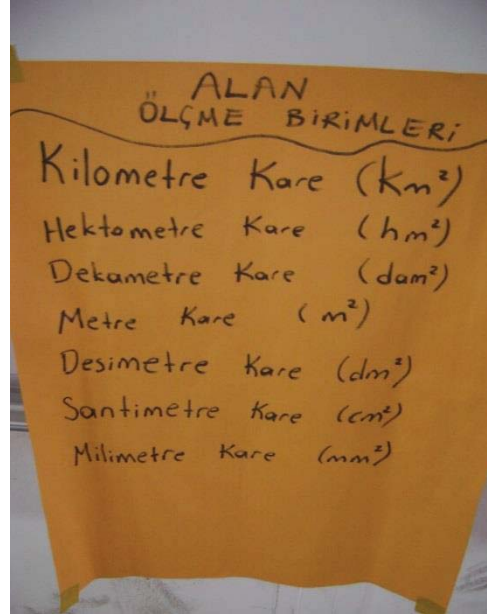 ALAN
ÖLÇME BİRİMLERİ
Kilometre Kare (km²)
Hektometre Kare (hm²)
Dekametre Kare (dam²)
Metre Kare (m²)
Desimetre Kare (dm²)
Santimetre Kare (cm²)
Milimetre Kare (mm²)